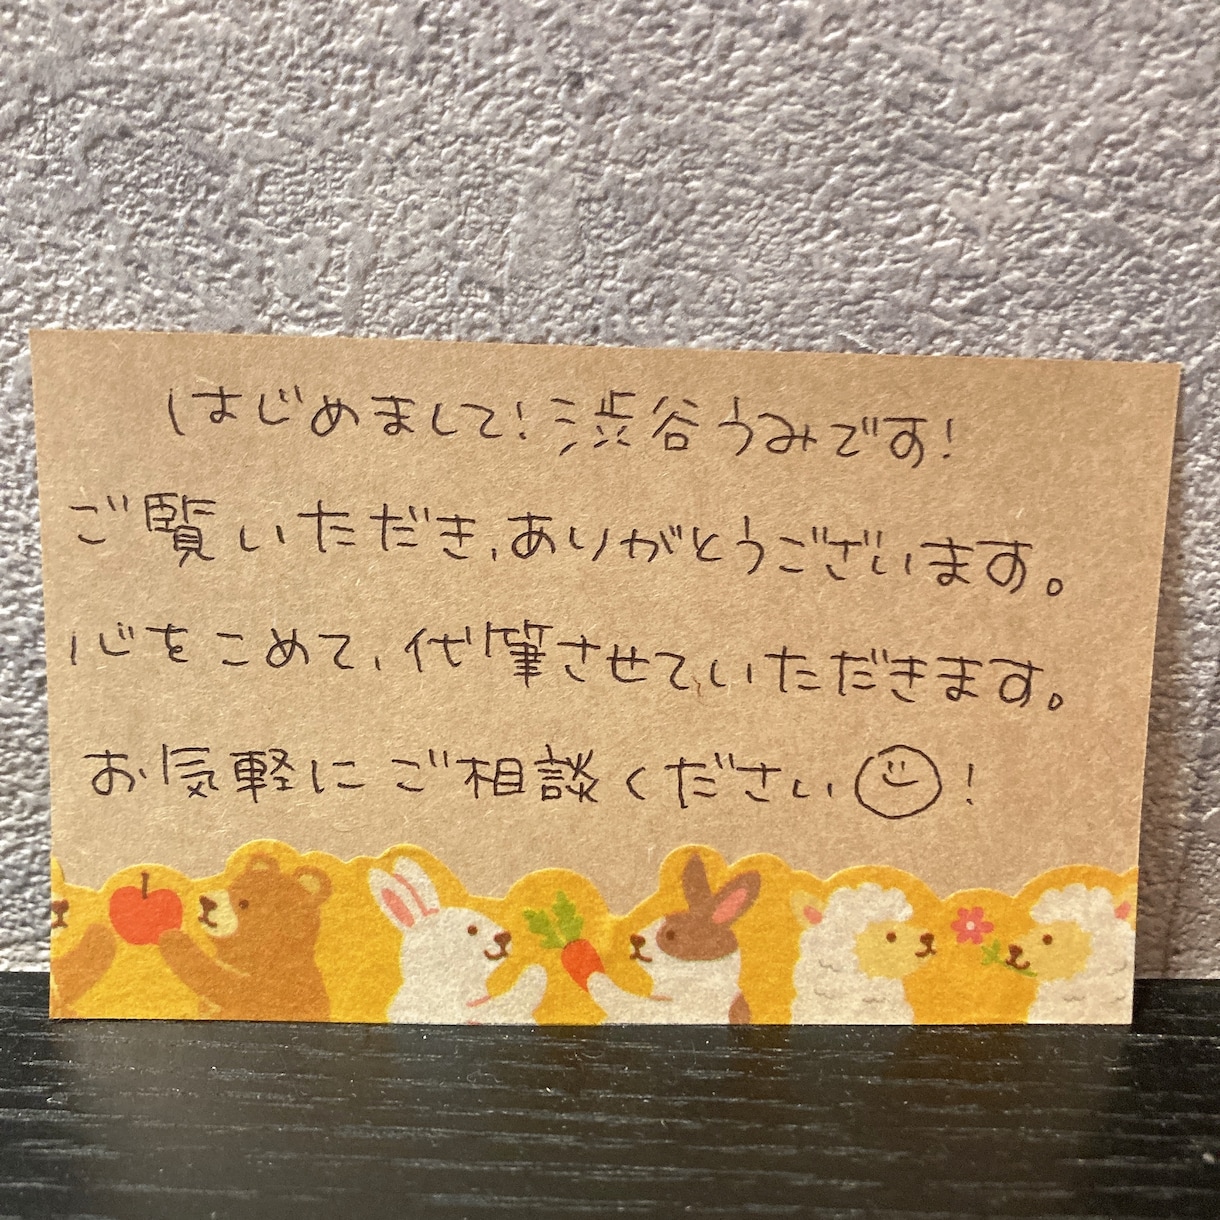 はじめまして！渋谷うみです！
ご覧いただき、ありがとうございます。
心をこめて、代筆させていただきます。
お気軽にご相談ください！